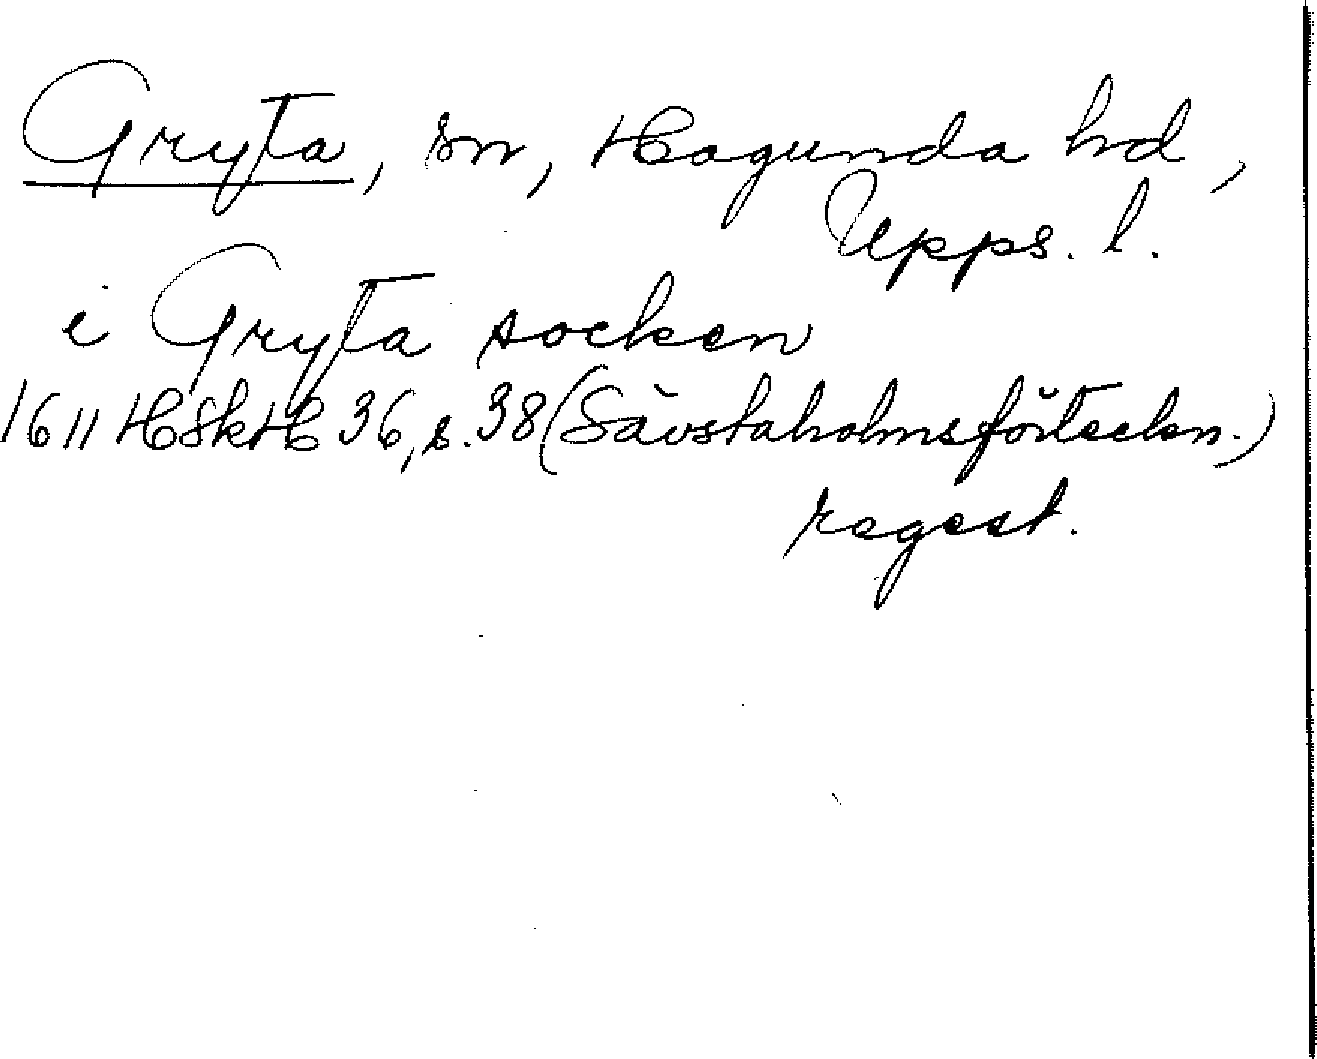 Gryta, sn, Hagunda hd,
Upps. l.
i Gryta socken
1611 HSkH 36, s. 38 (Sävstaholmsförteckn.)
regest.